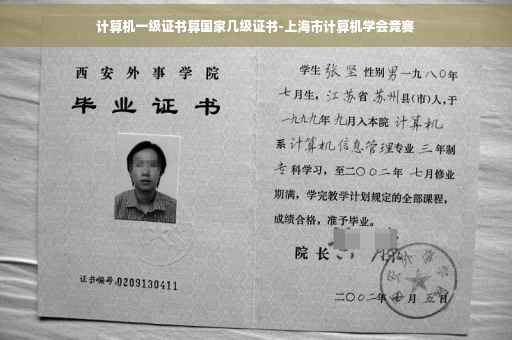 计算机一级证书算国家几级证书-上海市计算机学会竞赛
西安外事学院
毕业证书
证书编号:0209130411
学生 张坚 性别 男 一九八〇年
七月生, 江苏省 苏州县(市)人, 于
一九九九年 九月入本院 计算机
系 计算机信息管理专业 三 年制
专科学习, 至二〇〇二年 七月修业
期满, 学完教学计划规定的全部课程,
成绩合格, 准予毕业。
院长
二〇〇二年 月 五日